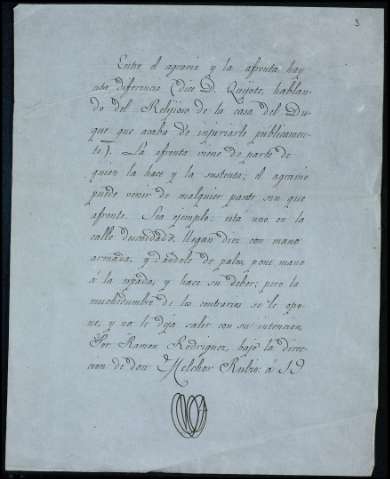 3
Entre el agravio y la afrenta hay
esta diferencia (dice D. Quijote, hablan-
do del Religioso de la casa del Du-
que que acaba de injuriarle públicamen-
te). La afrenta viene de parte de
quien la hace y la sustenta; el agravio
puede venir de cualquier parte sin que
afrente. Sea ejemplo: está uno en la
calle descuidado, llegan diez con mano
armada, y dándole de palos, pone mano
á la espada, y hace su deber; pero la
muchedumbre de los contrarios se le opo-
ne, y no le deja salir con su intención
Por Ramon Rodriguez, bajo la direc-
cion de don Melchor Rubio á 19